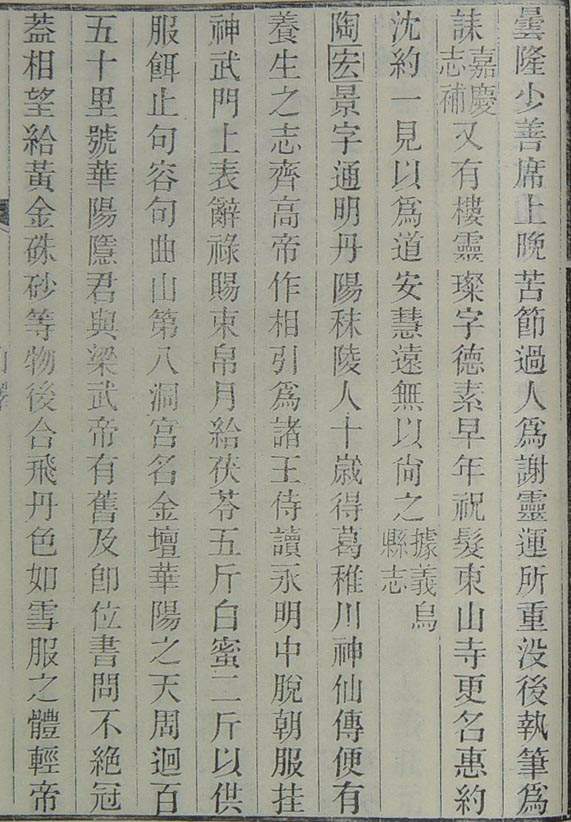 曇隆少善席上晚苦節過人爲謝靈運所重没後執筆爲
誄嘉慶志補又有樓靈璨字德素早年祝髮東山寺更名惠約
沈約一見以爲道安慧遠無以尙之據義烏縣志
陶宏景字通明丹陽秣陵人十歲得葛稚川神仙傳便有
養生之志齊高帝作相引爲諸王侍讀永明中脫朝服挂
神武門上表辭祿賜束帛月給茯苓五斤白蜜二斤以供
服餌止句容句曲山第八洞宮名金壇華陽之天周迴百
五十里號華陽隱君與梁武帝有舊及卽位書問不絕冠
葢相望給黃金硃砂等物後合飛丹色如雪服之體輕帝